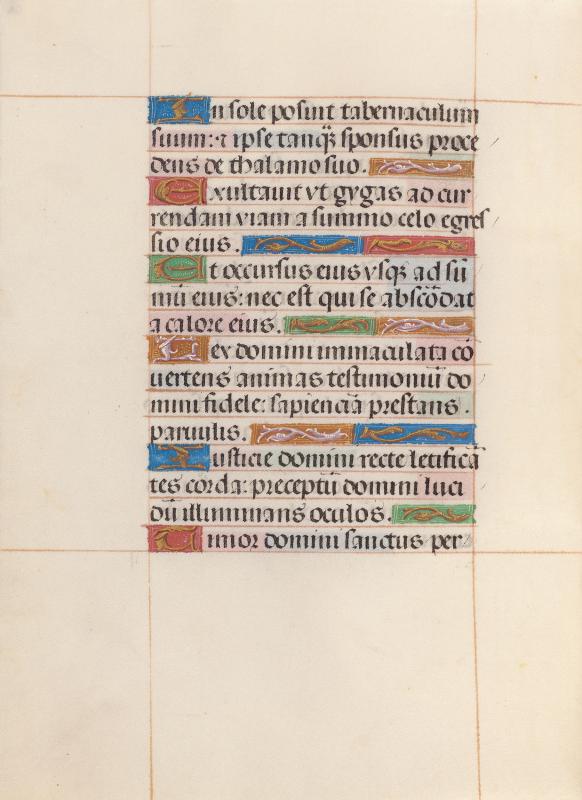 In sole posuit tabernaculum
suum: ⁊ ipse tanqȝ sponsus proce
dens de thalamo suo.
Exultauit vt gygas ad cur
rendam viam a summo celo egres
sio eius.
Et occursus eius vsqȝ ad sū
mū eius: nec est qui se abscōdat
a calore eius.
Lex domini immaculata cō
uertens animas testimoniū do
mini fidele: sapienciā prestans
paruulis.
Iusticie domini recte letificā
tes corda: preceptū domini luci
dū illuminans oculos.
Timor domini sanctus per